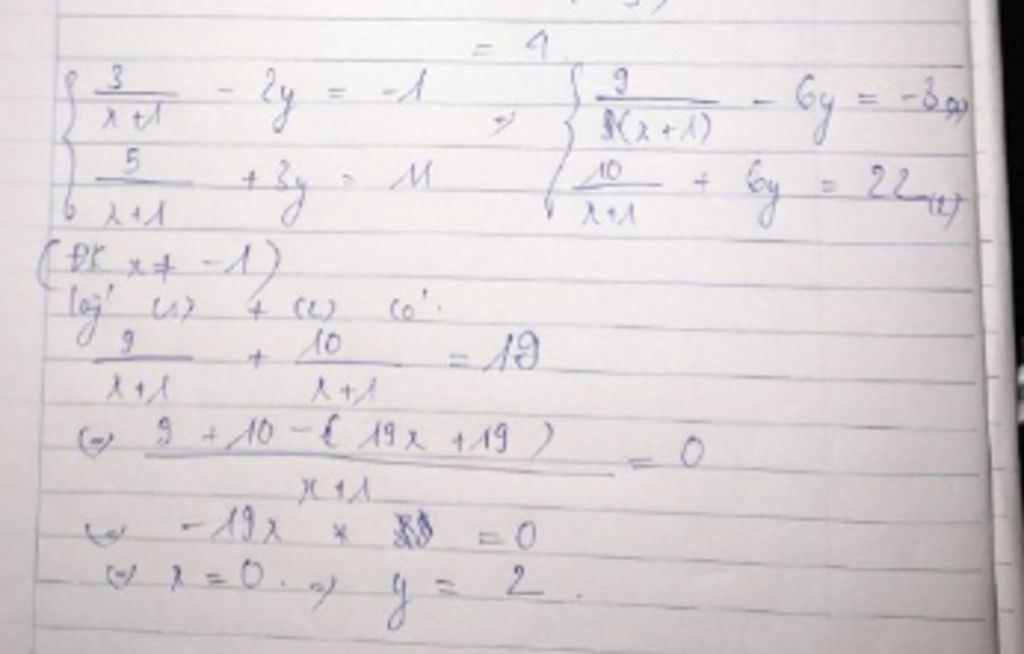 = 1
{ 3/(x+1) - 2y = -1 => { 9/(x+1) - 6y = -3 (1)
{ 5/(x+1) + 3y = 11 { 10/(x+1) + 6y = 22 (2)
(ĐK x ≠ -1)
lấy (1) + (2) có:
9/(x+1) + 10/(x+1) = 19
<=> (9 + 10 - (19x + 19))/(x+1) = 0
<=> -19x = 0
<=> x = 0. => y = 2.